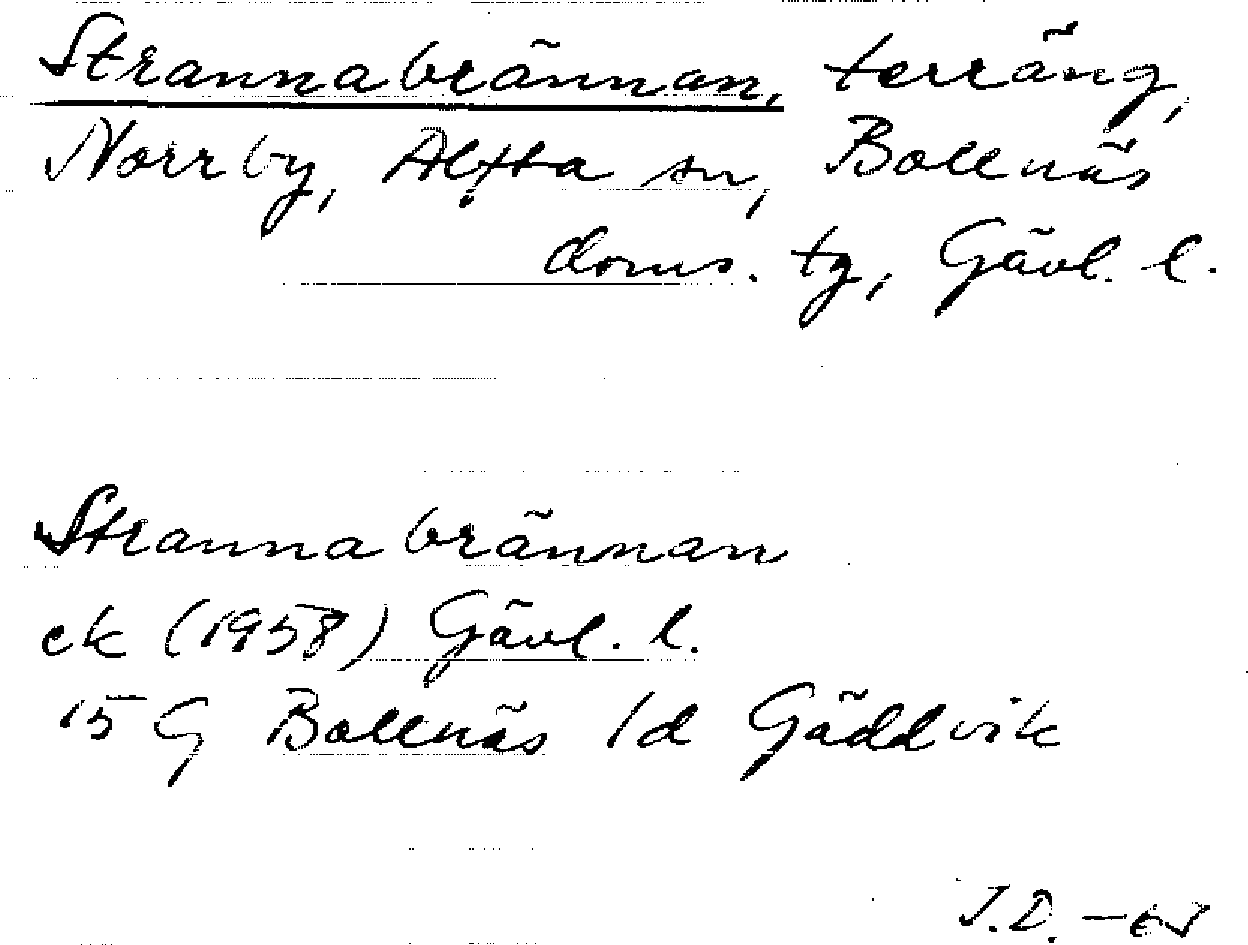 Strannabrännan, terräng,
Norrby, Alfta sn, Bollnäs
doms. tg, Gävl. l.
Strannabrännan
ek (1958) Gävl. l.
15 G Bollnäs 1d Gäddvik
J.D.